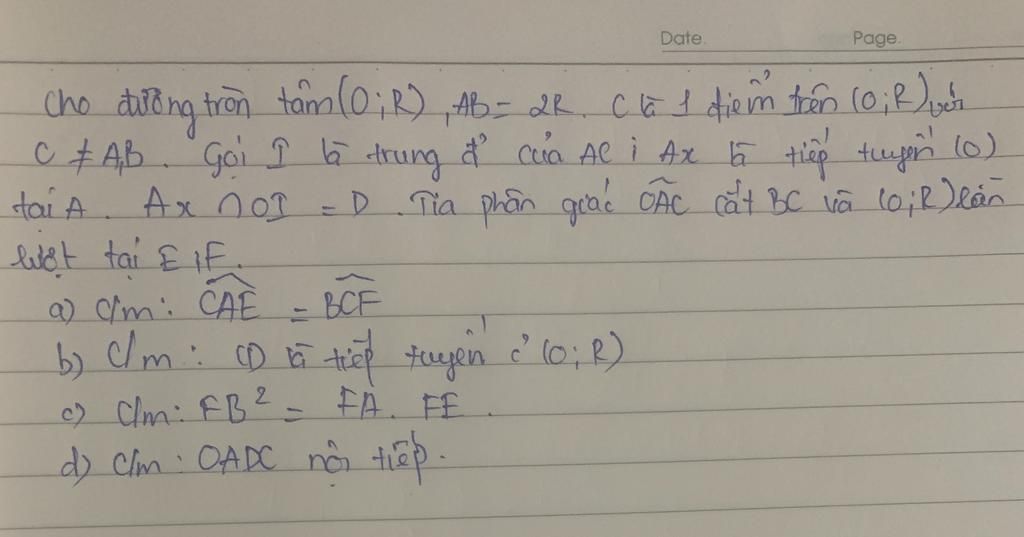 Date. Page.
Cho đường tròn tâm (O;R), AB = 2R. C là 1 điểm trên (O;R) với
C ≠ A,B. Gọi I là trung đ' của AC; Ax là tiếp tuyến (O)
tại A. Ax ∩ OI = D. Tia phân giác \widehat{OAC} cắt BC và (O;R) lần
lượt tại E, F.
a) C/m: \widehat{CAE} = \widehat{BCF}
b) C/m: CD là tiếp tuyến c' (O;R)
c) C/m: FB² = FA. FE.
d) C/m: OADC nội tiếp.